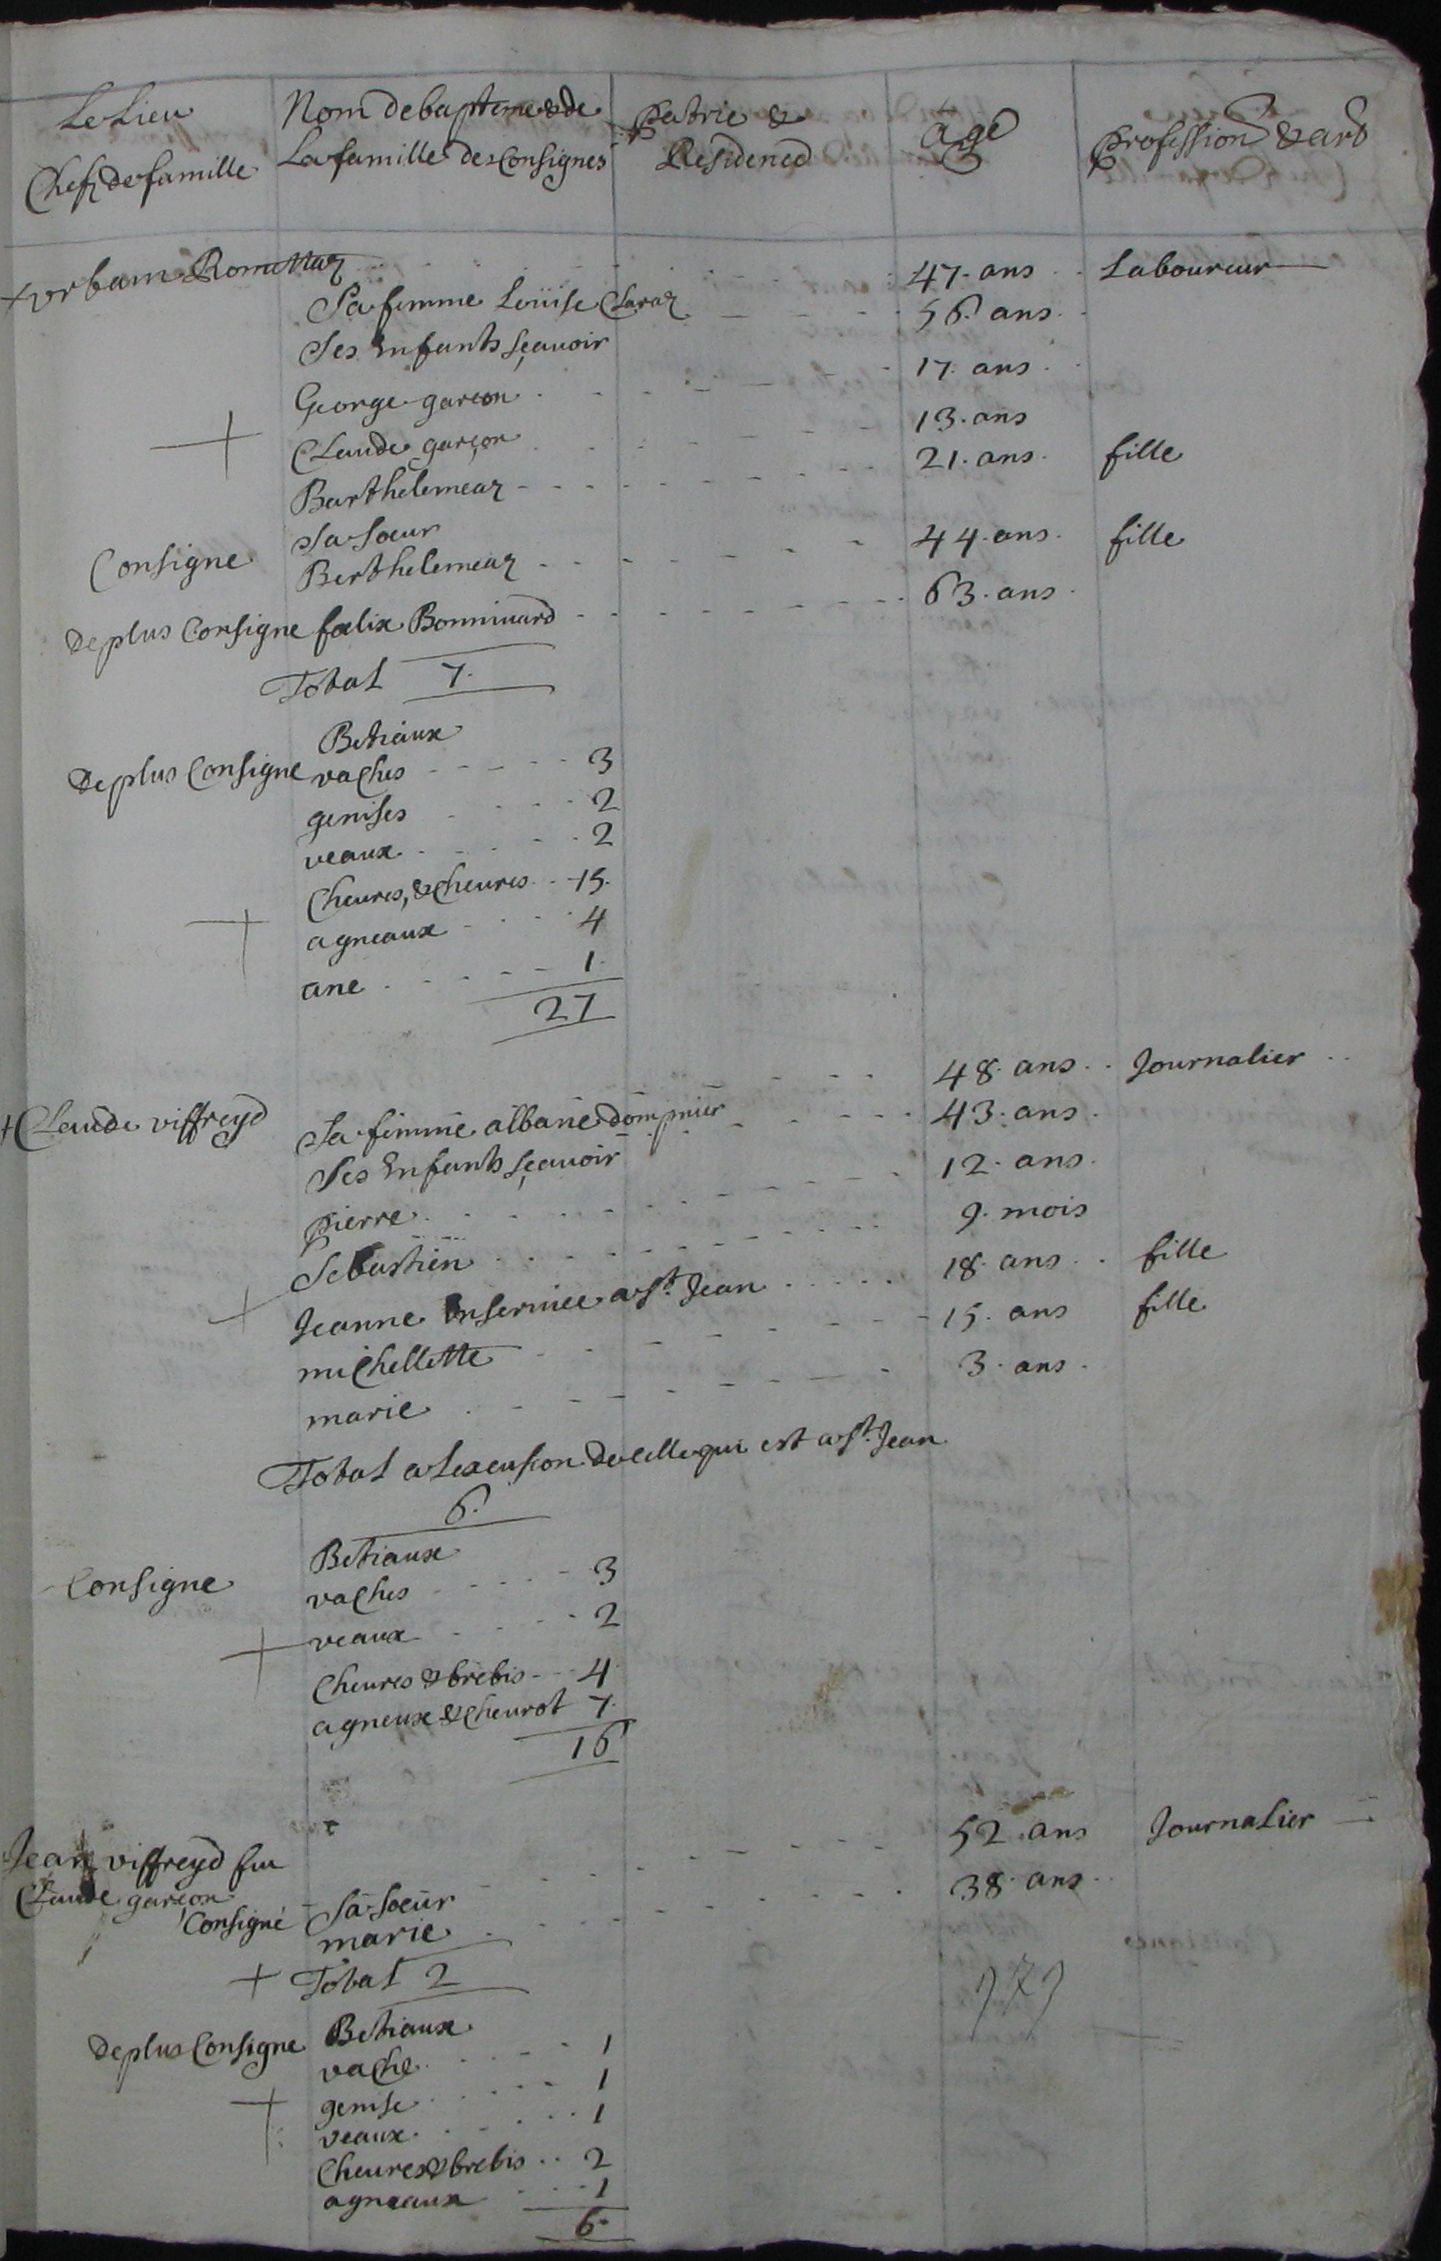 Le Lieu
Chefz de famille
Nom de bapteme & de
La famille des Consignes
patrie &
Residence
age
profession & art
+ urbain Romettaz 47. ans Laboureur
Sa femme Loüise Claraz 56. ans
Ses Enfants sçauoir
George garcon 17. ans
Claude garçon 13. ans
Barthelemear 21. ans fille
Sa Soeur
Consigne Berthelemear 44. ans fille
De plus Consigne foelix Bonniuard 63. ans
Total 7.
Betiaux
De plus Consigne vaches 3
genises 2
veaux 2
Cheures, & Cheures 15.
agneaux 4
ane 1.
27
+ Claude viffreyd 48. ans Journalier
Sa femme albane dompnier 43. ans
Ses Enfants sçauoir
pierre 12. ans
Sebastien 9. mois
Jeanne En seruice a St. Jean 18. ans fille
michellette 15. ans fille
marie 3. ans
Total a Lexcusion de celle qui est a St. Jean
6.
Betiaux
Consigne vaches 3
veaux 2
Cheures & brebis 4
agneux & Cheurot 7.
16
Jean viffreyd feu 52. ans Journalier
Claude garçon
Consigne Sa Soeur
marie 38. ans
+ Total 2
Betiaux
De plus Consigne vache 1
genise 1
veaux 1
Cheures & brebis 2
agneaux 1
6.